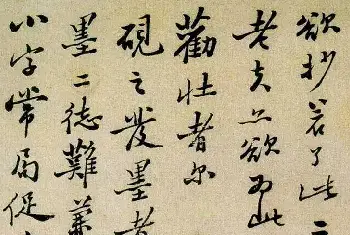 欲抄若了此二
老夫亦欲為此
勸壯者尔
硯之發墨者
墨二德難兼
小字常局促